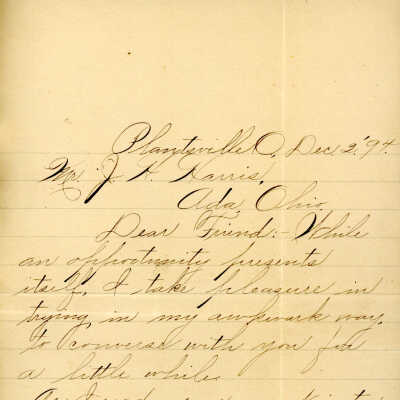 Plantsville O, Dec 2, '94.
Mr. J. A. Harris,
Ada, Ohio.
Dear Friend:- While
an opportunity presents
itself, I take pleasure in
trying, in my awkward way,
to converse with you for
a little while.